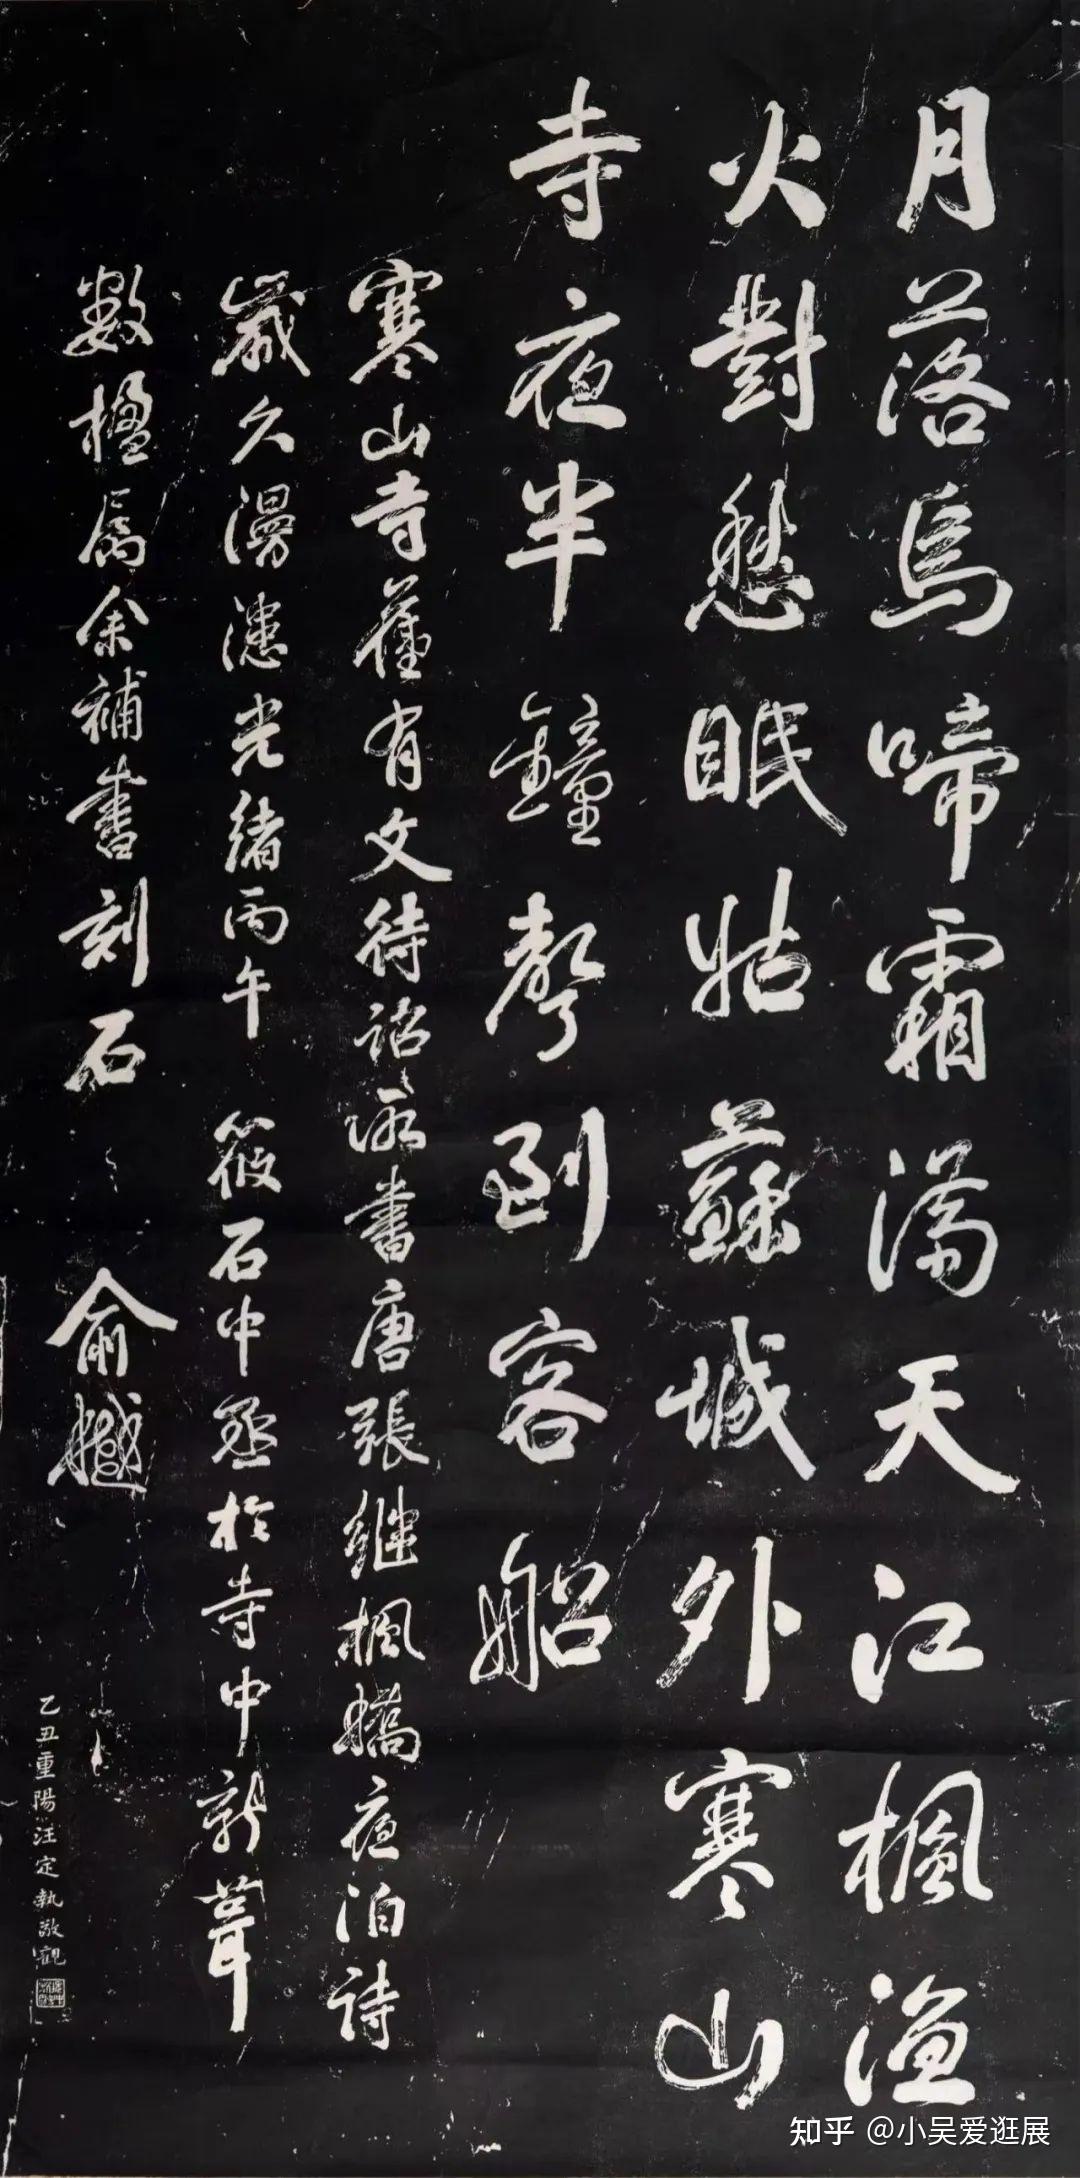 月落烏啼霜満天江楓漁
火對愁眠姑蘇城外寒山
寺夜半鐘聲到客船
寒山寺舊有文待詔所書唐張繼楓橋夜泊詩
歲久漫漶光緒丙午 筱石中丞於寺中新葺
數楹屬余補書刻石 俞樾
乙丑重陽汪定執敬觀
知乎 @小吴爱逛展